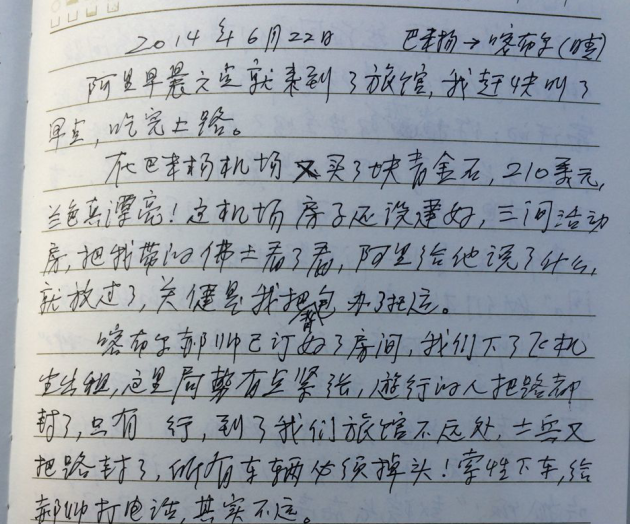 2014年6月22日 巴米扬→喀布尔(晴)
阿里早晨六点就来到了旅馆,我赶快叫了
早点,吃完上路。
在巴米扬机场又买了块青金石,210美元,
兰色真漂亮!这机场房子还没建好,三间活动
房,把我带的佛土看了看,阿里给他说了什么,
就放过了,关健是我把背包办了托运。
喀布尔郝帅已订好了房间,我们下了飞机
坐出租,这里局势有点紧张,游行的人把路都
封了,只有 行,到了我们旅馆不远处,士兵又
把路封了,所有车辆必须掉头!索性下车,给
郝帅打电话,其实不远。